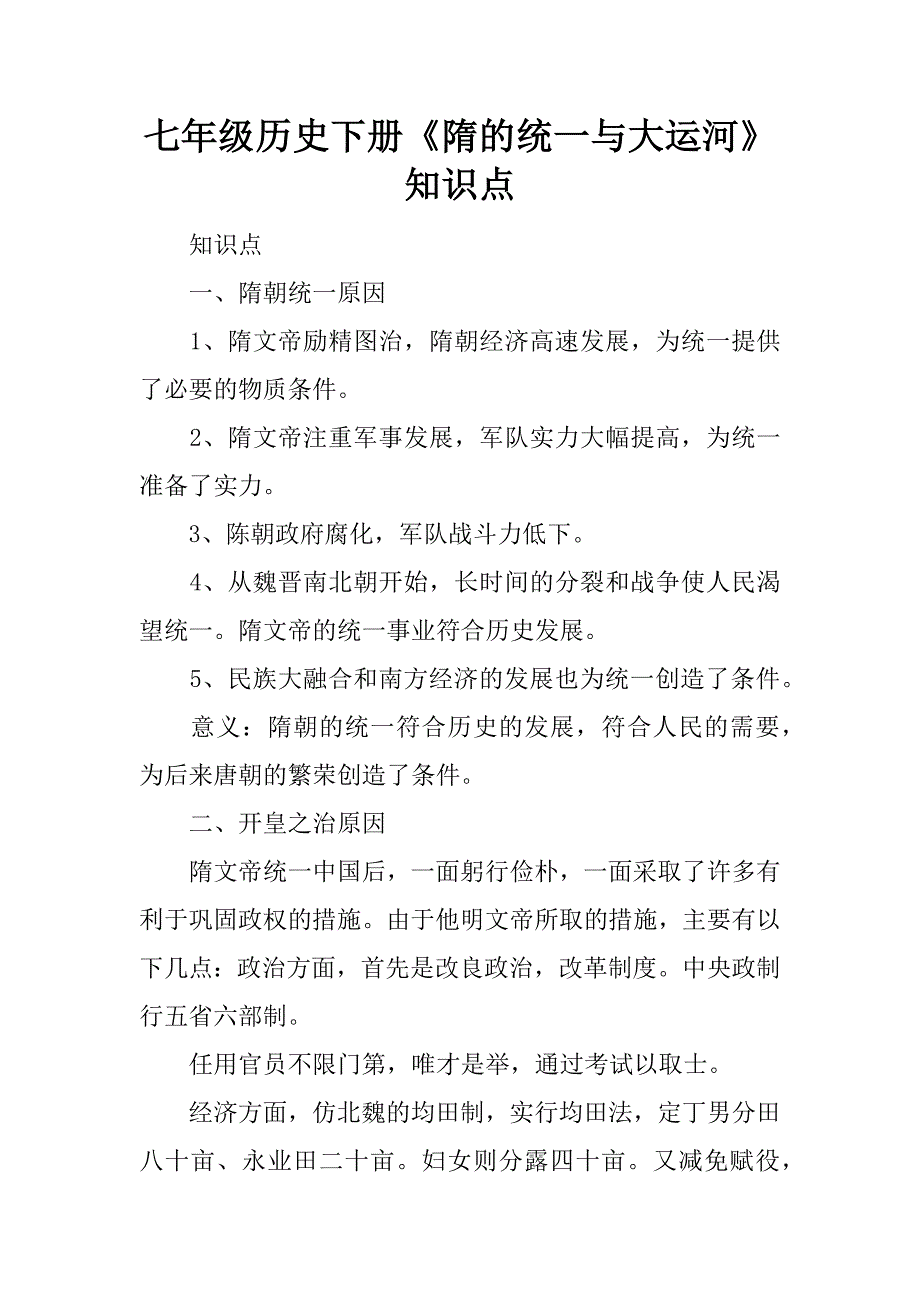 七年级历史下册《隋的统一与大运河》
知识点
知识点
一、隋朝统一原因
1、隋文帝励精图治，隋朝经济高速发展，为统一提供
了必要的物质条件。
2、隋文帝注重军事发展，军队实力大幅提高，为统一
准备了实力。
3、陈朝政府腐化，军队战斗力低下。
4、从魏晋南北朝开始，长时间的分裂和战争使人民渴
望统一。隋文帝的统一事业符合历史发展。
5、民族大融合和南方经济的发展也为统一创造了条件。
意义：隋朝的统一符合历史的发展，符合人民的需要，
为后来唐朝的繁荣创造了条件。
二、开皇之治原因
隋文帝统一中国后，一面躬行俭朴，一面采取了许多有
利于巩固政权的措施。由于他明文帝所取的措施，主要有以
下几点：政治方面，首先是改良政治，改革制度。中央政制
行五省六部制。
任用官员不限门第，唯才是举，通过考试以取士。
经济方面，仿北魏的均田制，实行均田法，定丁男分田
八十亩、永业田二十亩。妇女则分露四十亩。又减免赋役，